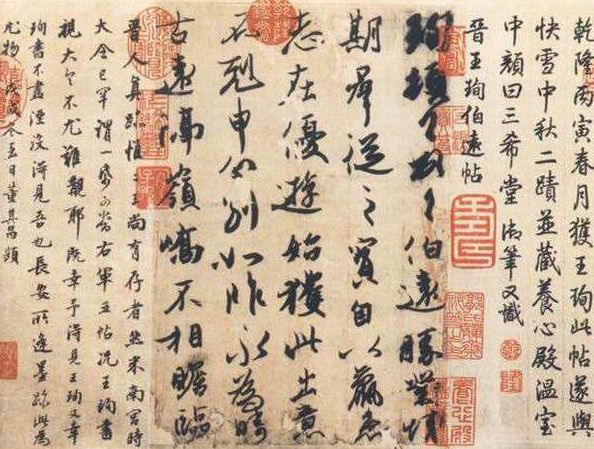 乾隆丙寅春月獲王珣此帖遂與
快雪中秋二蹟並藏養心殿溫室
中顏曰三希堂 御筆又識
晉王珣伯遠帖
珣頓首頓首伯遠勝業情
期群從之寶自以羸患
志在優遊始獲此出意
不剋申分別如昨永為疇
古遠隔嶺嶠不相瞻臨
晉人真跡惟二王尚有存者然米南宮時
大令已罕謂一紙可當右軍五帖況王珣書
視大令不尤難覯耶既幸予得見王珣又幸
珣書不盡湮沒得見吾也長安所逢墨跡此為
尤物 戊戌冬至日董其昌題